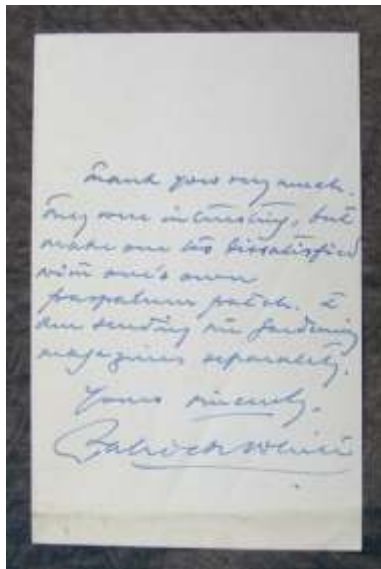 Thank you very much.
They were interesting, but
make one too dissatisfied
with one's own
paspalum patch. I
am sending the gardening
magazines separately.
Yours sincerely,
Patrick White